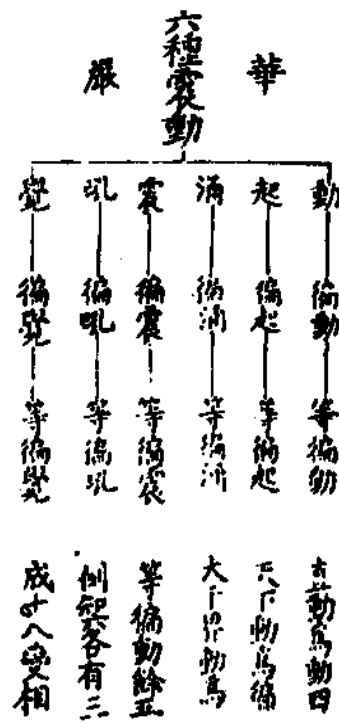 華
六種震動
嚴
動 徧動 等徧動
起 徧起 等徧起
涌 徧涌 等徧涌
震 徧震 等徧震
吼 徧吼 等徧吼
覺 徧覺 等徧覺
動爲動四
天下動爲徧
大千界動爲
等徧動餘五
例知各有三
成十八變相